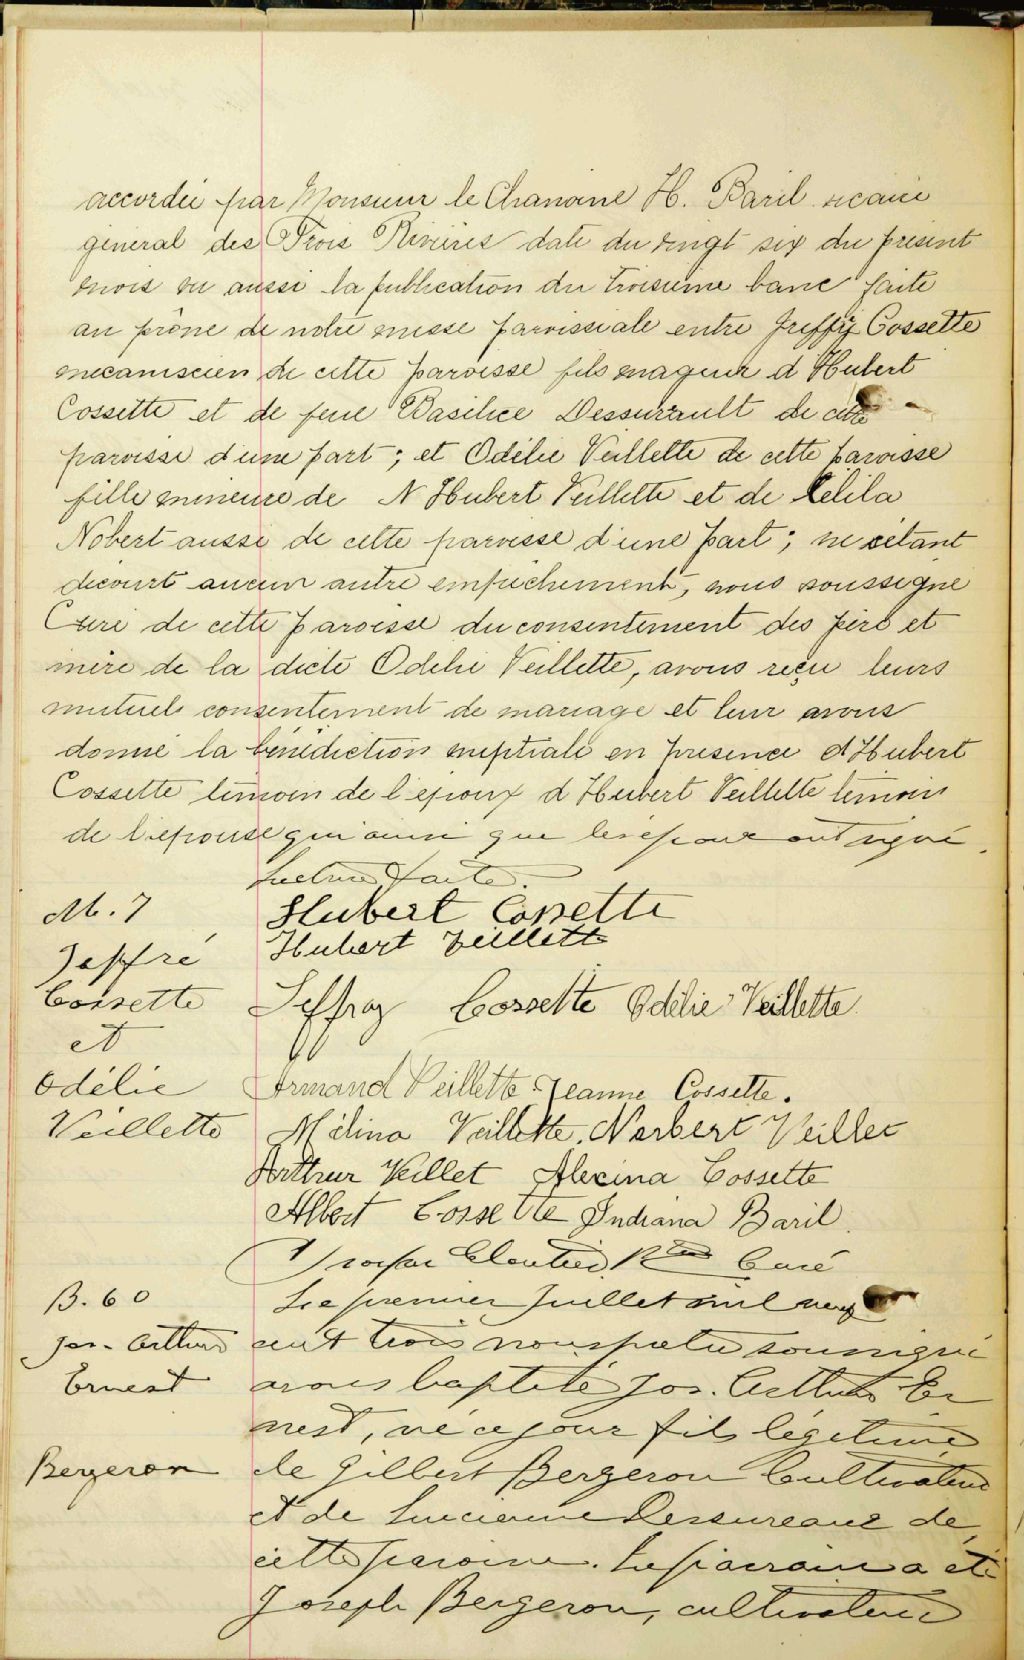 accordée par Monsieur le Chanoine H. Baril vicaire
general des Trois Rivières date du vingt six du présent
mois vu aussi la publication du troisieme banc faite
au prône de notre messe paroissiale entre Jeffry Cossette
mecaniscien de cette paroisse fils mageur d Hubert
Cossette et de feue Basilice Dessurault de cette
paroisse d'une part ; et Odélie Veillette de cette paroisse
fille mineure de N Hubert Veillette et de Célila
Nobert aussi de cette paroisse d'une part ; ne s'étant
décourt aucun autre empêchement, nous soussigné
Curé de cette paroisse du consentement des père et
mère de la dicte Odelie Veillette, avons reçu leurs
mutuels consentement de mariage et leur avons
donné la bénédiction nuptiale en présence d'Hubert
Cossette témoin de l'époux d Hubert Veillette témoin
de l'épouse qui ainsi que les époux ont signé.
Lecture faite.
M. 7 Hubert Cossette
Jeffré Hubert Veillette
Cossette Jeffray Cossette Odélie Veillette
et
Odélie Armand Veillette Jeanne Cossette.
Veillette Mélina Veillette. Norbert Veillet
Arthur Veillet Alexina Cossette
Albert Cossette Indiana Baril.
Cloutier Ptre Curé
B. 60 Le premier Juillet mil neuf
Jos. Arthur cent trois nous prêtre soussigné
Ernest avons baptisé Jos. Arthur Er
nest, né ce jour fils légitime
Bergeron de Gilbert Bergeron Cultivateur
et de Lucienne Dessureaux de
cette paroisse. Le parrain a été
Joseph Bergeron, cultivateur